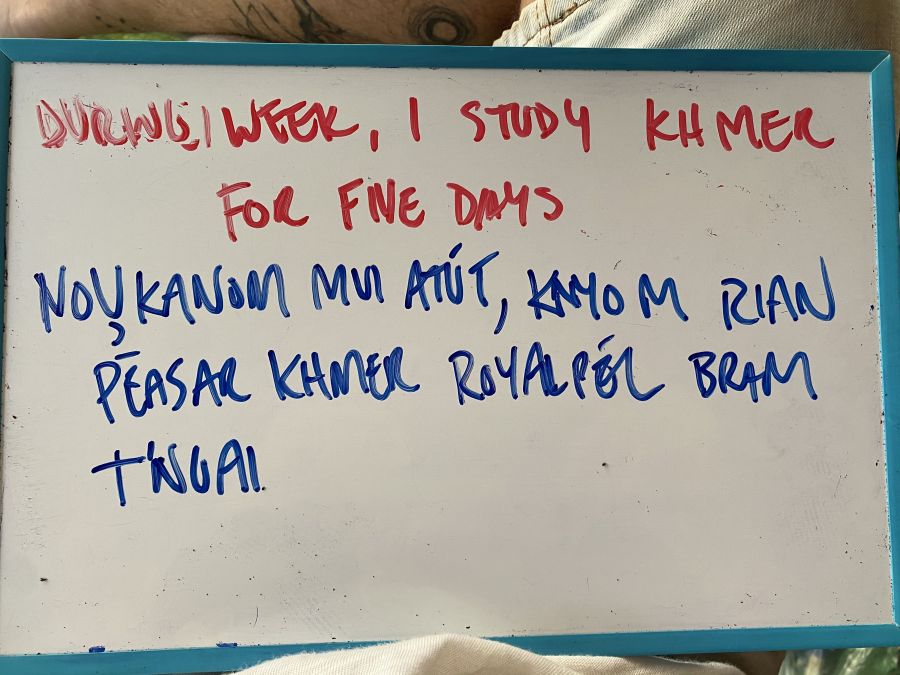 DURING 1 WEEK, I STUDY KHMER
FOR FIVE DAYS
NOỤ KANOM MUI ATÚT, KNYOM RIAN
PĒASAR KHMER ROYALPÉL BRAM
T'NGAI.